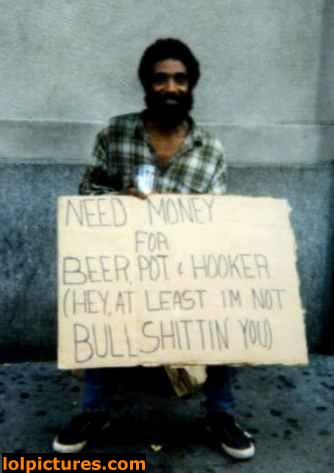 NEED MONEY
FOR
BEER, POT & HOOKER
(HEY, AT LEAST IM NOT
BULLSHITTIN YOU)
lolpictures.com